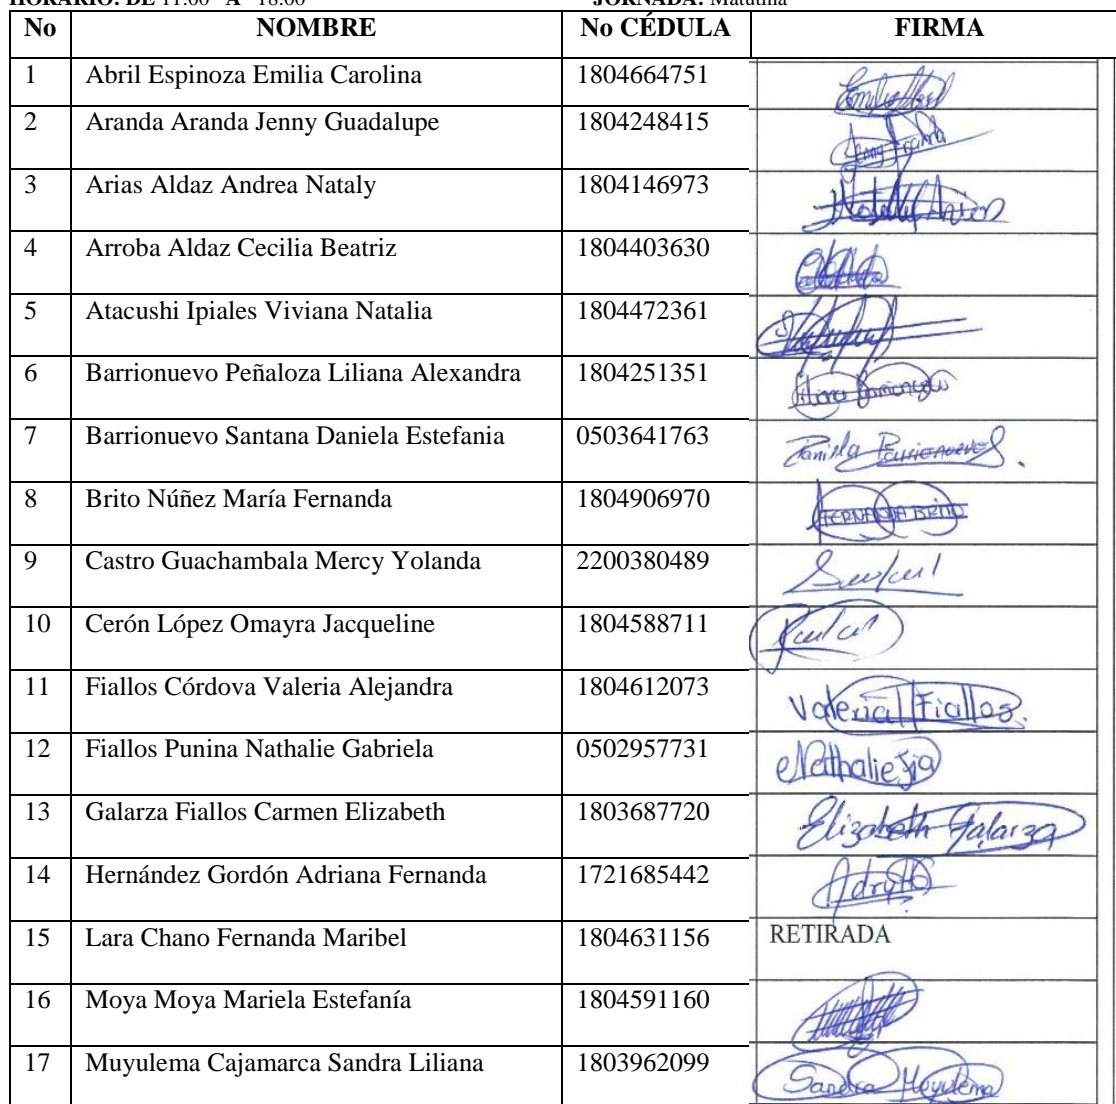 HORARIO: DE 11:00 A 18:00 JORNADA: Matutina
No NOMBRE No CÉDULA FIRMA
1 Abril Espinoza Emilia Carolina 1804664751
2 Aranda Aranda Jenny Guadalupe 1804248415
3 Arias Aldaz Andrea Nataly 1804146973 Nataly Arias
4 Arroba Aldaz Cecilia Beatriz 1804403630
5 Atacushi Ipiales Viviana Natalia 1804472361
6 Barrionuevo Peñaloza Liliana Alexandra 1804251351
7 Barrionuevo Santana Daniela Estefania 0503641763 Daniela Barrionuevo S.
8 Brito Núñez María Fernanda 1804906970 FERNANDA BRITO
9 Castro Guachambala Mercy Yolanda 2200380489
10 Cerón López Omayra Jacqueline 1804588711
11 Fiallos Córdova Valeria Alejandra 1804612073 Valeria Fiallos.
12 Fiallos Punina Nathalie Gabriela 0502957731 Nathalie Fia
13 Galarza Fiallos Carmen Elizabeth 1803687720 Elizabeth Galarza
14 Hernández Gordón Adriana Fernanda 1721685442
15 Lara Chano Fernanda Maribel 1804631156 RETIRADA
16 Moya Moya Mariela Estefanía 1804591160
17 Muyulema Cajamarca Sandra Liliana 1803962099 Sandra Muyulema